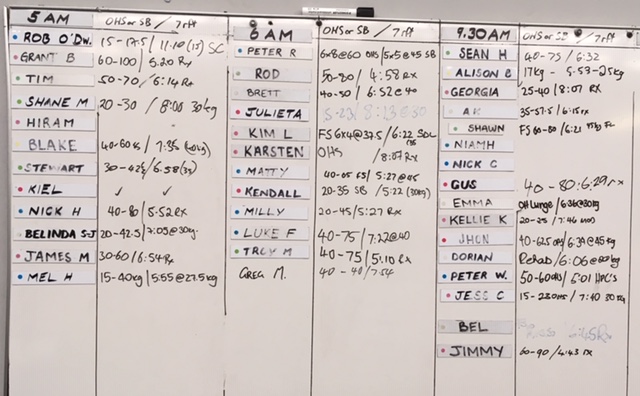 5 AM OHS or SB / 7rft
ROB O'DW. 15-17.5 / 11.10 (15) SC
GRANT B 60-100 / 5.20 Rx
TIM 50-70 / 6:14 Rx
SHANE M 20-30 / 8:00 30kg
HIRAM
BLAKE 40-60 / 7:35
STEWART 30-42½ / 6.58
KIEL ✓ ✓
NICK H 40-80 / 5.52 Rx
BELINDA S-J 20-42.5 / 7:05@30kg
JAMES M 30-60 / 6:54 Rx
MEL H 15-40kg / 5:55@27.5kg
6 AM OHS or SB / 7rft
PETER R 6x8@60 OHS / 5x5@45 SB
ROD 50-80 / 4:58 Rx
BRETT 40-50 / 6:52@40
JULIETA
KIM L FS 6x4@37.5 / 6:22
KARSTEN OHS / 8:07 Rx
MATTY / 5:27@45
KENDALL 20-35 SB / 5:22 (30kg)
MILLY 20-45 / 5:27 Rx
LUKE F 40-75 / 7:22@40
TROY M 40-75 / 5:10 Rx
GREG M. 40-40 / 7:54
9.30 AM OHS or SB / 7rft
SEAN H 40-75 / 6:32
ALISON B 17kg - 5:53-25kg
GEORGIA 25-40 / 8:07 RX
AK 35-57.5 / 6:15 rx
SHAWN FS 60-80 / 6:21
NIAMH
NICK C
GUS 40-80:6:29 rx
EMMA OH Lunge / 6:36@30kg
KELLIE K 20-25 / 7:46 mod
JHON / 6:39@45kg
DORIAN Rehab / 6:06@60kg
PETER W. 50-60 / 5:01
JESS C / 7:40 30kg
BEL
JIMMY 60-90 / 4:43 rx